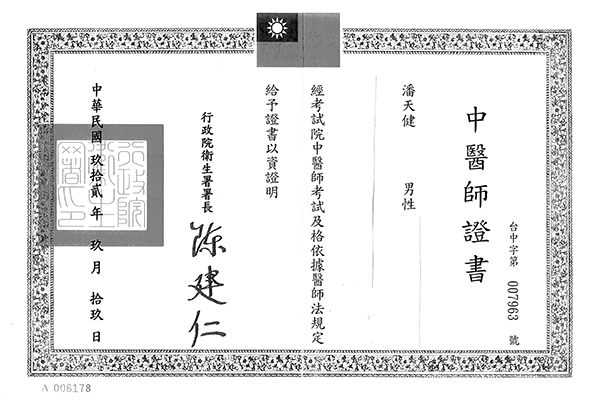 中醫師證書
台中字第 007963 號
潘天健 男性
經考試院中醫師考試及格依據醫師法規定
給予證書以資證明
行政院衛生署署長
陳建仁
中華民國玖拾貳年 玖月 拾玖日
行政院衛生署印
A 006178